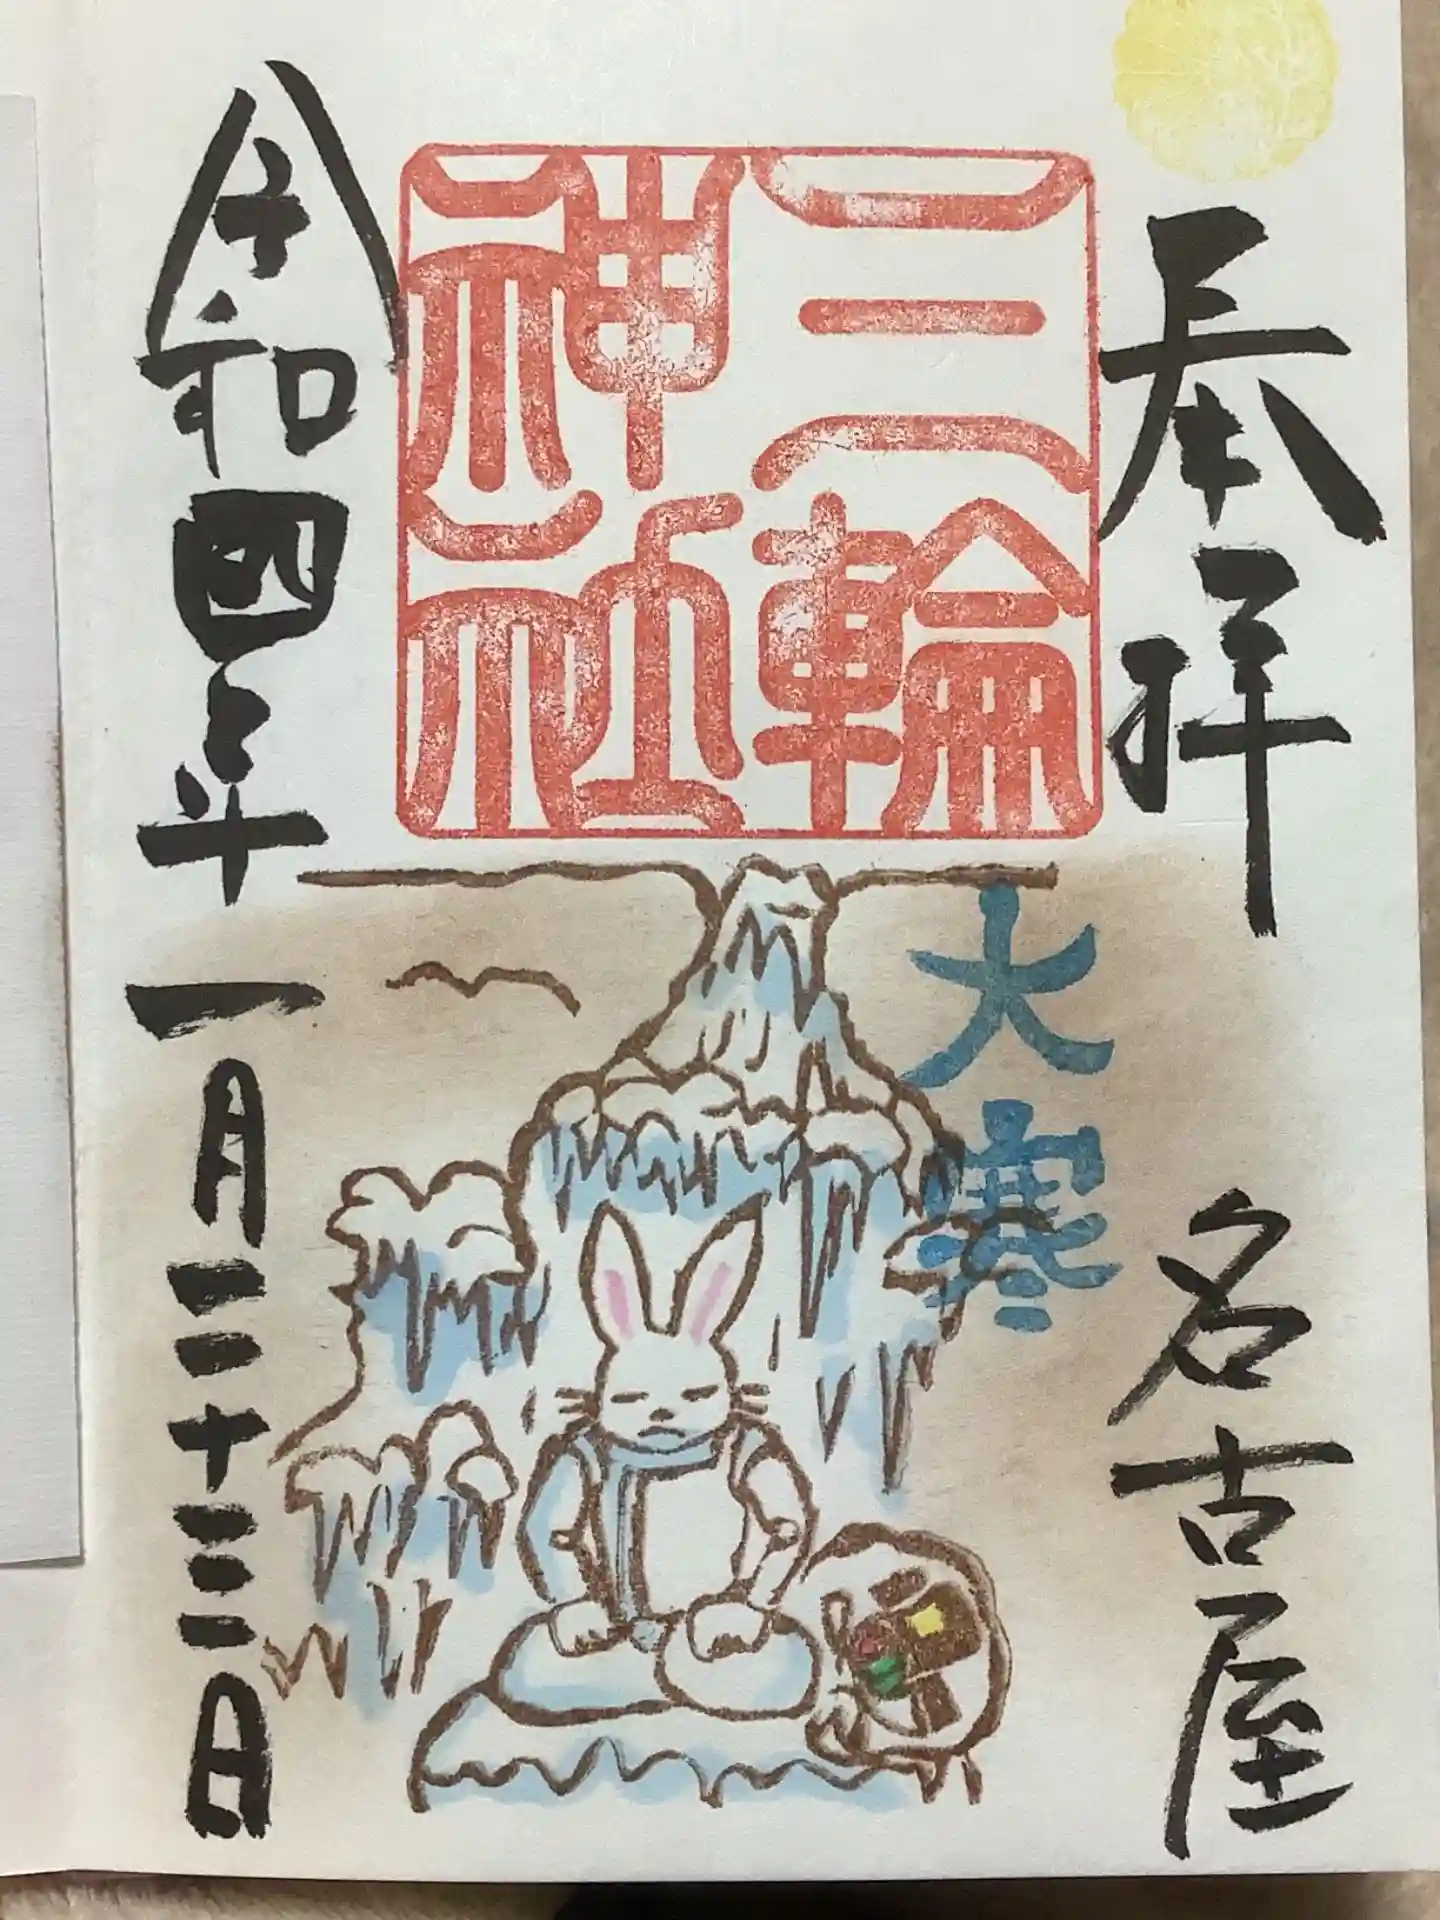 奉拝
名古屋
三輪
神社
大寒
令和四年一月二十三日